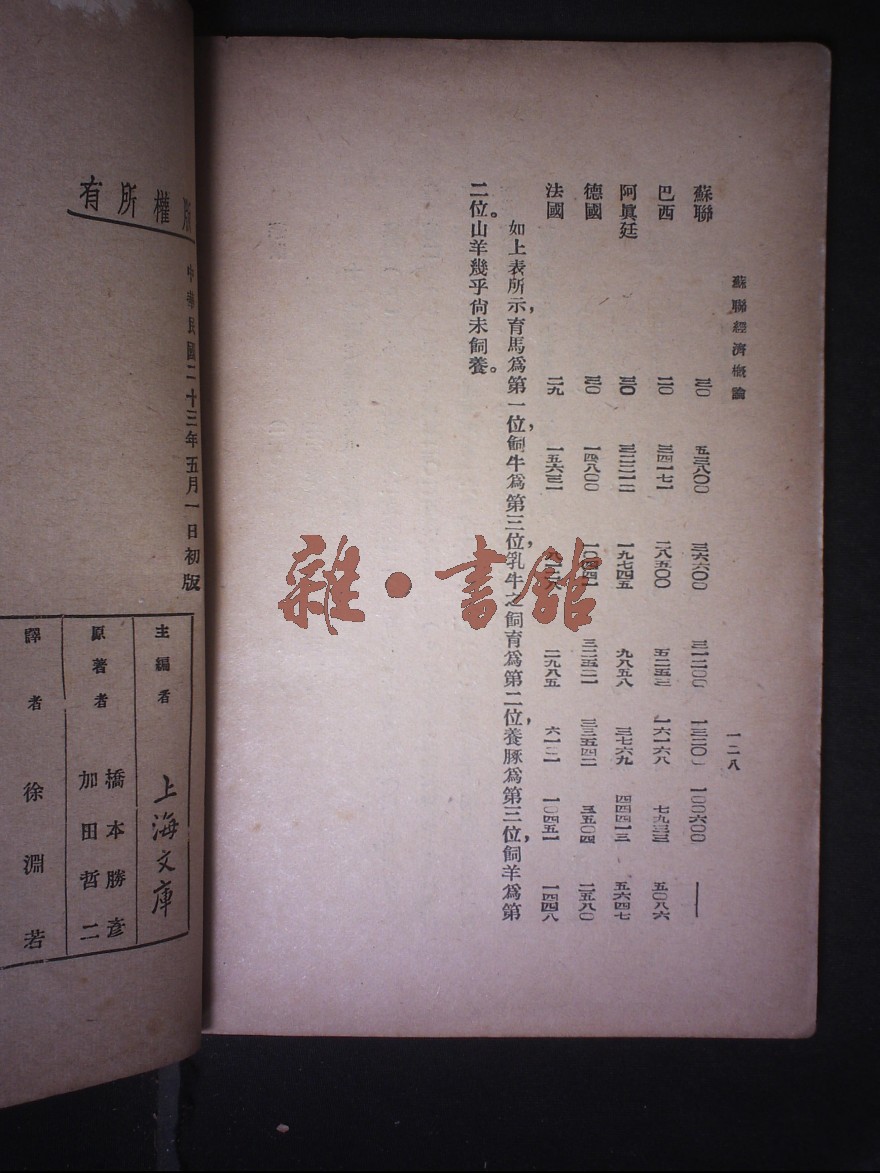 蘇聯經濟概論
一二八
蘇聯 三〇 五三八〇〇 三六六〇〇 三一二〇〇 一〇〇六〇〇 ——
巴西 二〇 三四一七一 二八五〇〇 五二五三 一六一六八 七九三三 五〇八六
阿眞廷 三〇 三二二一二 一九七四五 九八五八 三七六九 四四四一三 五六四七
德國 三〇 一四八〇〇 三三五四二 三五〇四 二五八〇
法國 二九 一五六三一 二九八五 六一〇二 一〇四五一 一四四八
如上表所示，育馬爲第一位，飼牛爲第三位，乳牛之飼育爲第二位，養豚爲第三位，飼羊爲第
二位。山羊幾乎尙未飼養。
雜·書館
權所有
中華民國二十三年五月一日初版
主編者 上海文庫
原著者 橋本勝彥
加田哲二
譯者 徐淵若